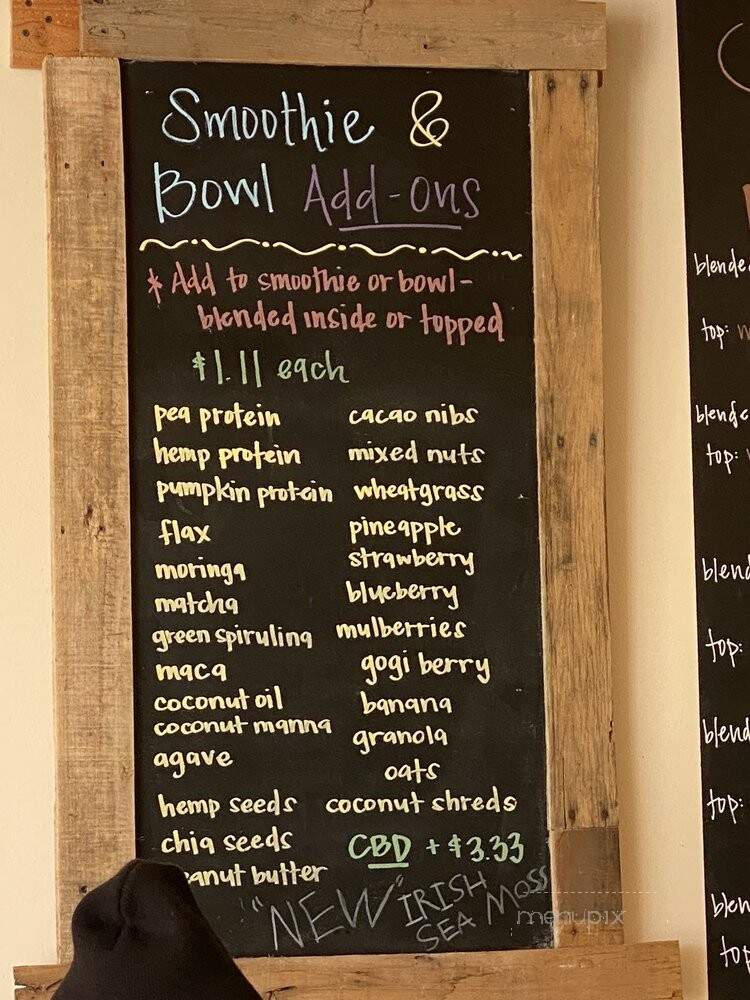 Smoothie &
Bowl Add-ons
* Add to smoothie or bowl-
blended inside or topped
$1.11 each
pea protein
hemp protein
pumpkin protein
flax
moringa
matcha
green spirulina
maca
coconut oil
coconut manna
agave
hemp seeds
chia seeds
peanut butter
cacao nibs
mixed nuts
wheatgrass
pineapple
strawberry
blueberry
mulberries
gogi berry
banana
granola
oats
coconut shreds
CBD + $3.33
"NEW" IRISH
SEA MOSS
menupix
top:
top:
top:
top: